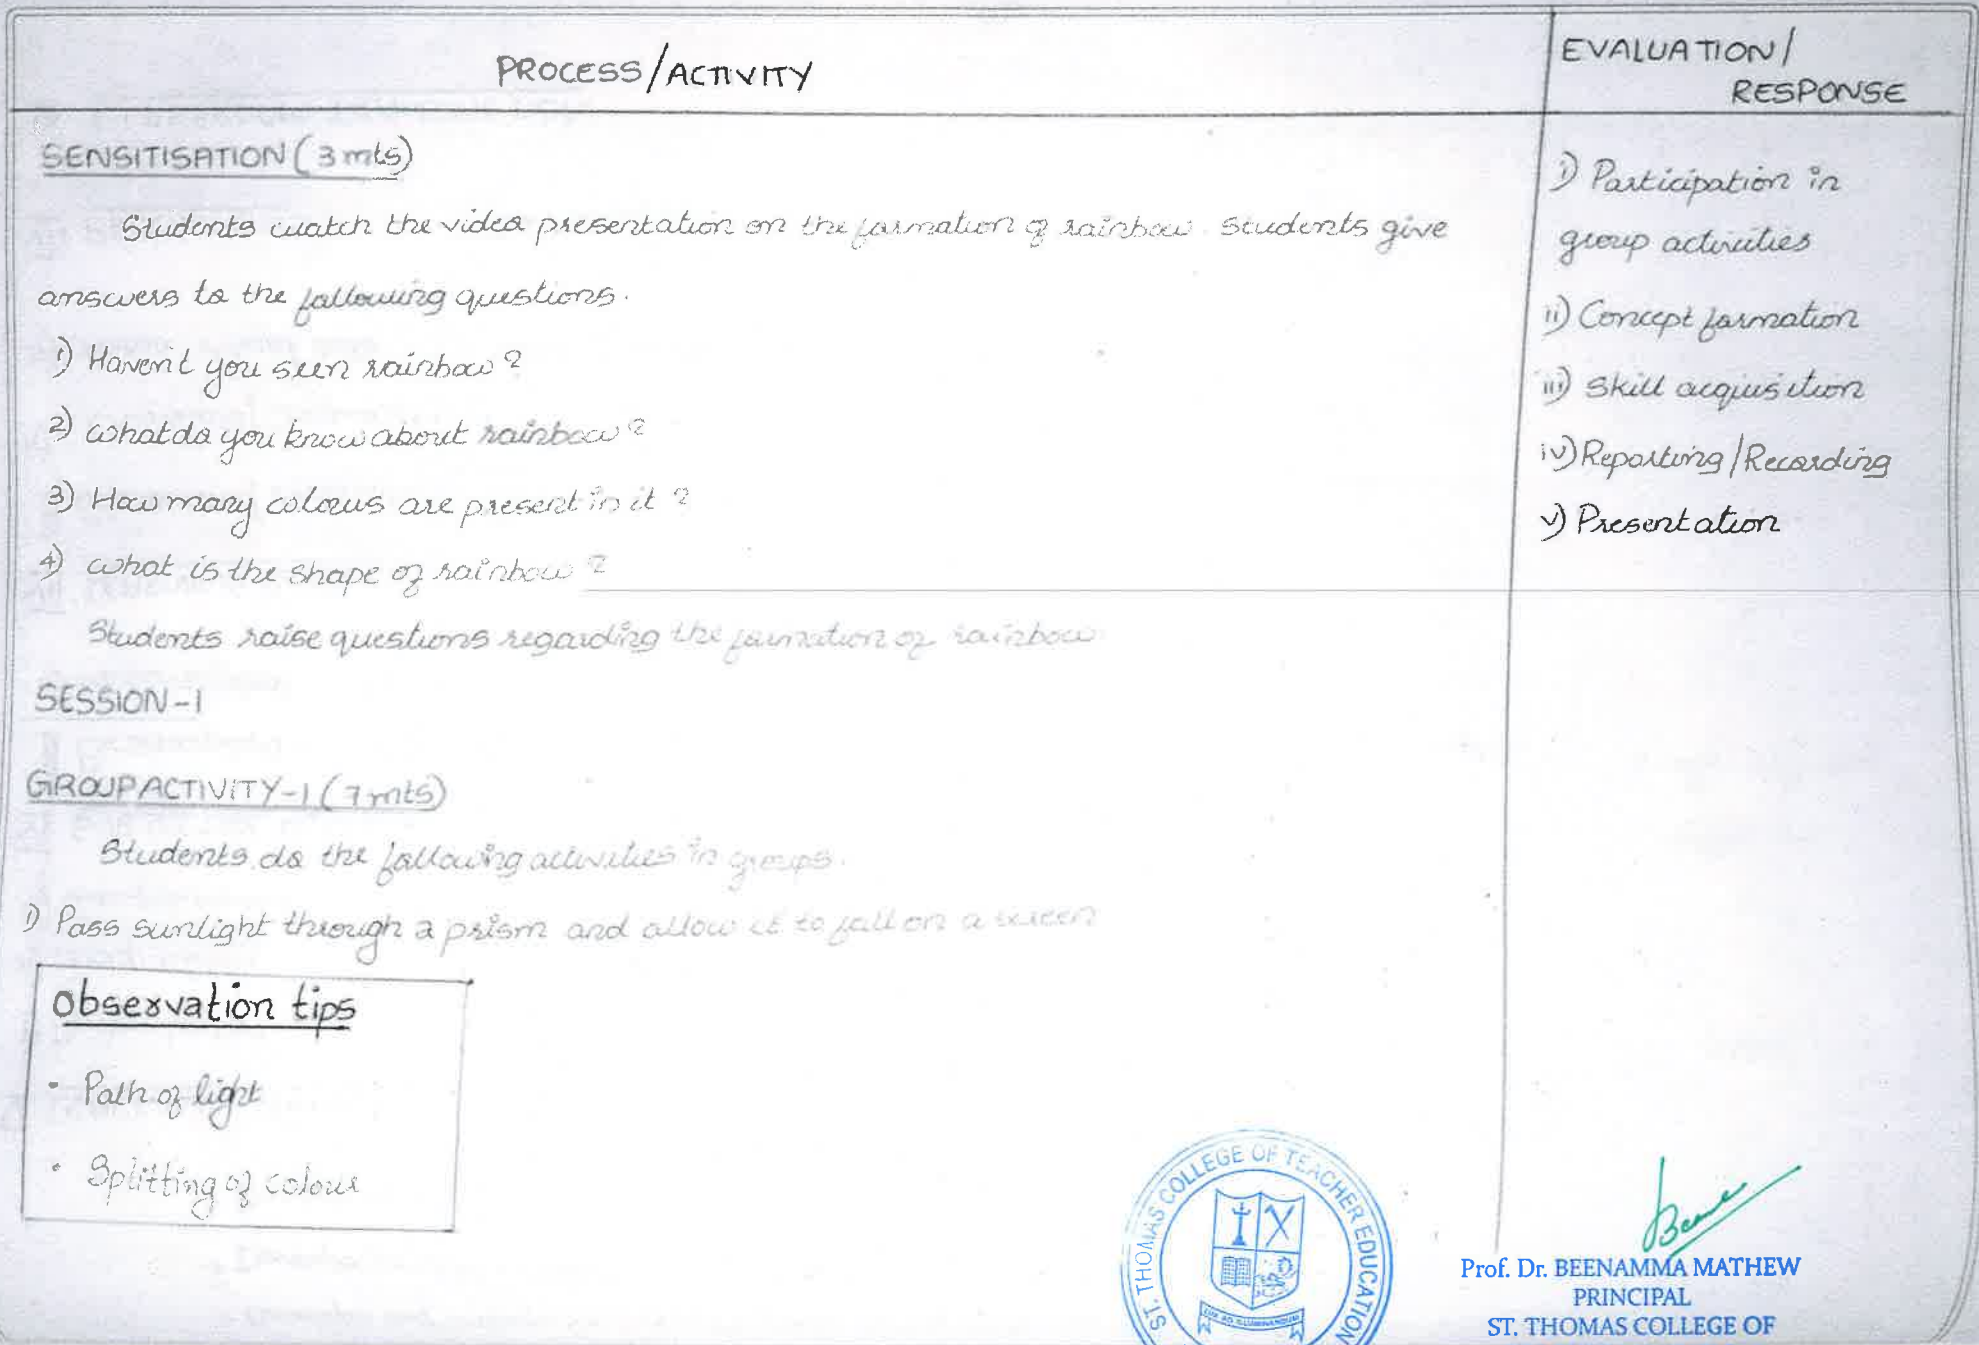 PROCESS/ACTIVITY
EVALUATION/
RESPONSE
SENSITISATION (3 mts)
Students watch the video presentation on the formation of rainbow. Students give
answers to the following questions.
1) Haven't you seen rainbow?
2) What do you know about rainbow?
3) How many colours are present in it?
4) What is the shape of rainbow?
Students raise questions regarding the formation of rainbow
SESSION-1
GROUP ACTIVITY-1 (7 mts)
Students do the following activities in groups.
1) Pass sunlight through a prism and allow it to fall on a screen
Observation tips
• Path of light
• Splitting of colour
i) Participation in
group activities
ii) Concept formation
iii) Skill acquisition
iv) Reporting/Recording
v) Presentation
ST. THOMAS COLLEGE OF TEACHER EDUCATION
Prof. Dr. BEENAMMA MATHEW
PRINCIPAL
ST. THOMAS COLLEGE OF